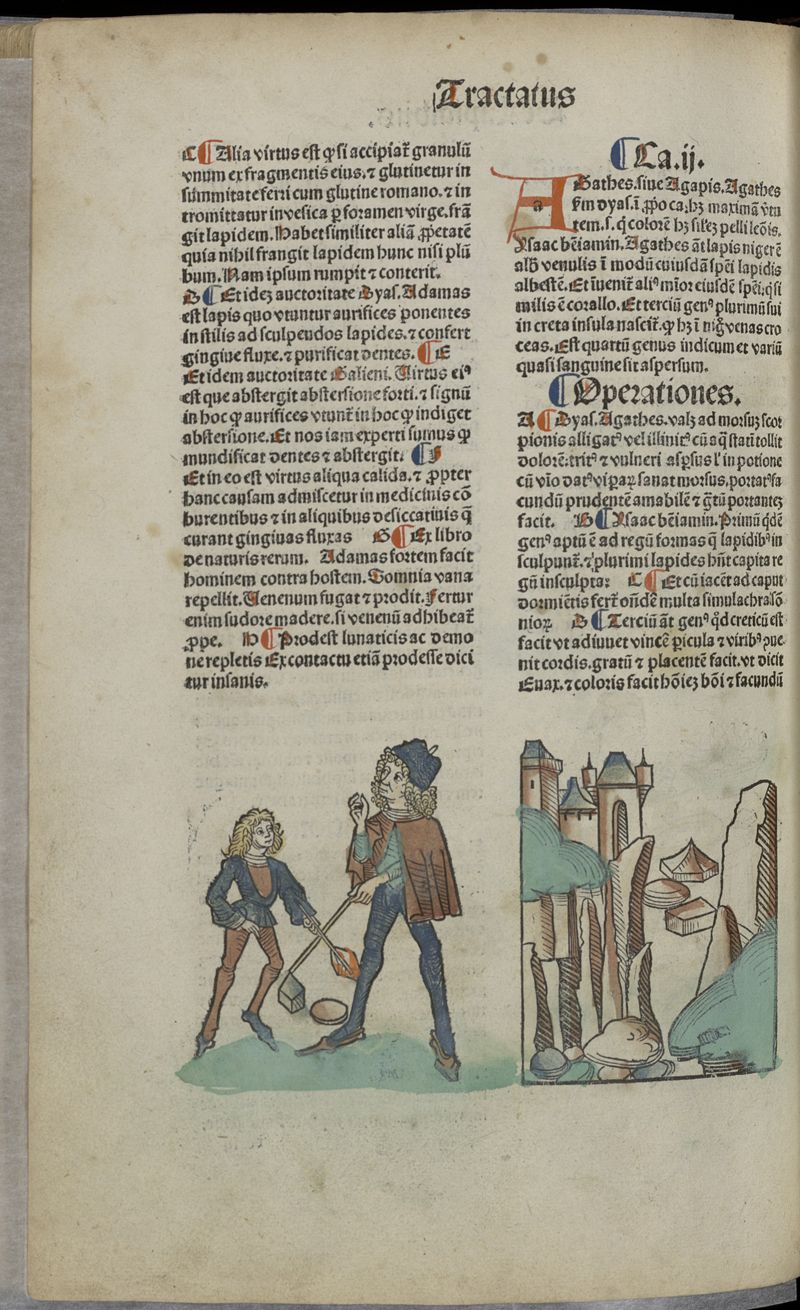 Tractatus
C ¶ Alia virtus est ꝙ si accipiat᷑ granulū
vnum ex fragmentis eius.⁊ glutinetur in
sūmmitate ferri cum glutine romano.⁊ in
tromittatur in vesica ꝑ foramen virge.frā
git lapidem. Habet similiter aliā ꝓpetatē
quia nihil frangit lapidem hunc nisi plū
bum. Nam ipsum rumpit ⁊ conterit.
D ¶ Et idez auctoritate Dyas. Adamas
est lapis quo vtuntur aurifices ponentes
in stilis ad sculpendos lapides.⁊ confert
gingiue fluxe.⁊ purificat dentes. ¶ E
Et idem auctoritate Galieni. Virtus eiꝰ
est que abstergit abstersione forti.⁊ signū
in hoc ꝙ aurifices vtunt᷑ in hoc ꝙ indiget
abstersione. Et nos iam experti sumus ꝙ
mundificat dentes ⁊ abstergit. ¶ F
Et in eo est virtus aliqua calida.⁊ ꝓpter
hanc causam admiscetur in medicinis cō
burentibus ⁊ in aliquibus desiccatiuis q̄
curant gingiuas fluxas G ¶ Ex libro
de naturis rerum. Adamas fortem facit
hominem contra hostem. Somnia vana
repellit. Venenum fugat ⁊ prodit. Fertur
enim sudore madere.si venenū adhibeat᷑
ꝓpe. H ¶ Prodest lunaticis ac demo
ne repletis Ex contactu etiā prodesse dici
tur insanis.
¶ Ca.ij.
AGathes.siue Agapis. Agathes
ẜm dyas.ī ꝓpo ca.hꝫ maximā v̓tu
tem.s.q̄ colorē hꝫ sil̓eꝫ pelli leōis.
Ysaac bēiamin. Agathes āt lapis niger ē
alb̓ venulis ī modū cuiusdā sp̄ei lapidis
albestē. Et īuenit᷑ aliꝰ mīor eiusdē sp̄ei:q̓ si
milis ē corallo. Et terciū genꝰ plurimū sui
in creta insula nascit᷑.ꝙ hꝫ ī nig̓ venas cro
ceas. Est quartū genus indicum et variū
quasi sanguine sit aspersum.
¶ Operationes.
A ¶ Dyas. Agathes.valꝫ ad morsuꝫ scor
pionis alligatꝰ vel illinitꝰ cū aq̄ statū tollit
dolorē:tritꝰ ⁊ vulneri asp̱sus l̓ in potione
cū vīo datꝰ viꝑaꝝ sanat morsus.portatꝰ fa
cundū prudentē amabilē ⁊ g̓tū portanteꝫ
facit. B ¶ Ysaac bēiamin. Primū qdē
genꝰ aptū ē ad regū formas q̄ lapidibꝰ in
sculpunt᷑.⁊ plurimi lapides hn̄t capita re
gū insculpta: C ¶ Et cū iacēt ad caput
dormiētis fert᷑ on̄dē multa simulachra sō
nioꝝ D ¶ Terciū āt genꝰ qd̓ creticū est
facit vt adiuuet vincē ꝑicula ⁊ viribꝰ ꝓue
nit cordis.gratū ⁊ placentē facit.vt dicit
Euax.⁊ coloris facit hōieꝫ bōi ⁊ facundū